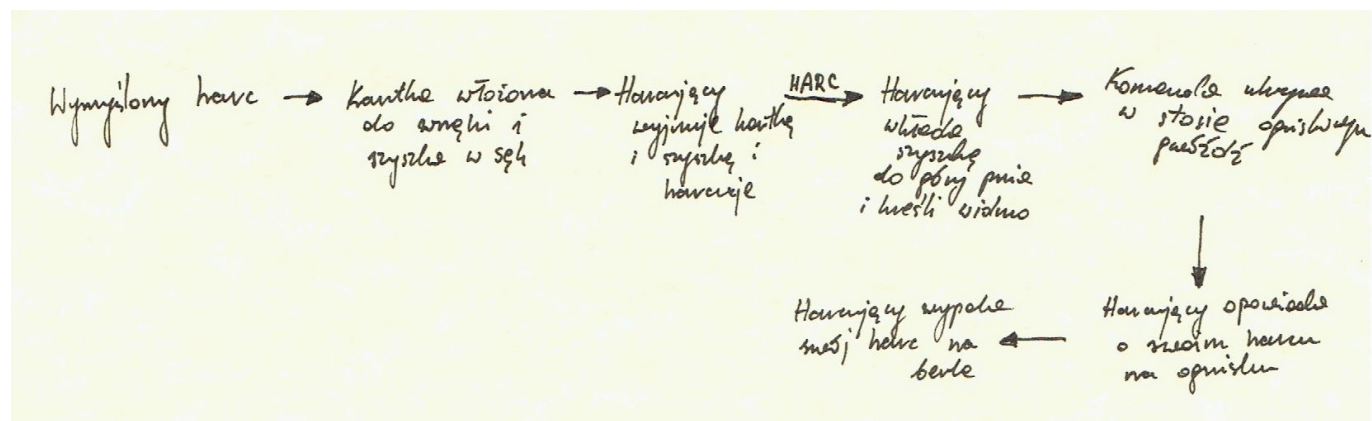 Wymyślony harc
Kartka włożona
do wnęki i
szyszka w sęk
Harcujący
wyjmuje kartkę
i szyszkę i
harcuje
HARC
Harcujący
wkłada
szyszkę
do góry pnia
i kreśli widmo
Komenda ukrywa
w stosie ogniskowym
gałąź
Harcujący opowiada
o swoim harcu
na ognisku
Harcujący wypala
swój harc na
berle